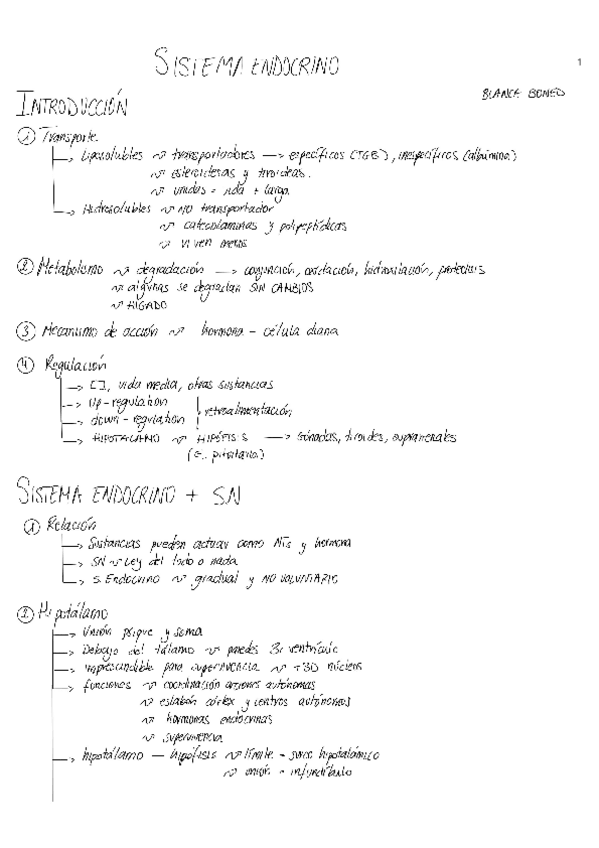 SISTEMA ENDOCRINO
1
BLANCA BONED
INTRODUCCIÓN
① Transporte
→ Liposolubles ~> transportadores → específicos (TGB), inespecíficos (albúmina)
~> esteroideas y tiroideas.
~> unidas = vida + larga.
→ Hidrosolubles ~> NO transportador
~> catecolaminas y polipeptídicas
~> viven menos
② Metabolismo ~> degradación → conjunción, oxidación, hidroxilación, proteolisis
~> algunas se degradan SIN CAMBIOS
~> HIGADO
③ Mecanismo de acción ~> hormona - célula diana
④ Regulación
→ [], vida media, otras sustancias
→ Up-regulation
→ down-regulation
retroalimentación
→ HIPOTALAMO ~> HIPÓFISIS → Gónadas, tiroides, suprarrenales
(G. pituitaria)
SISTEMA ENDOCRINO + SN
① Relación
→ Sustancias pueden actuar como NTs y hormona
→ SN ~> Ley del todo o nada
→ S. Endocrino ~> gradual y NO VOLUNTARIO
② Hipotálamo
→ Unión psique y soma
→ Debajo del tálamo ~> paredes 3er ventrículo
→ imprescindible para supervivencia ~> +30 núcleos
→ funciones ~> coordinación acciones autónomas
~> eslabón córtex y centros autónomos
~> hormonas endocrinas
~> supervivencia
→ hipotálamo - hipófisis ~> límite - surco hipotalámico
~> unión - infundíbulo